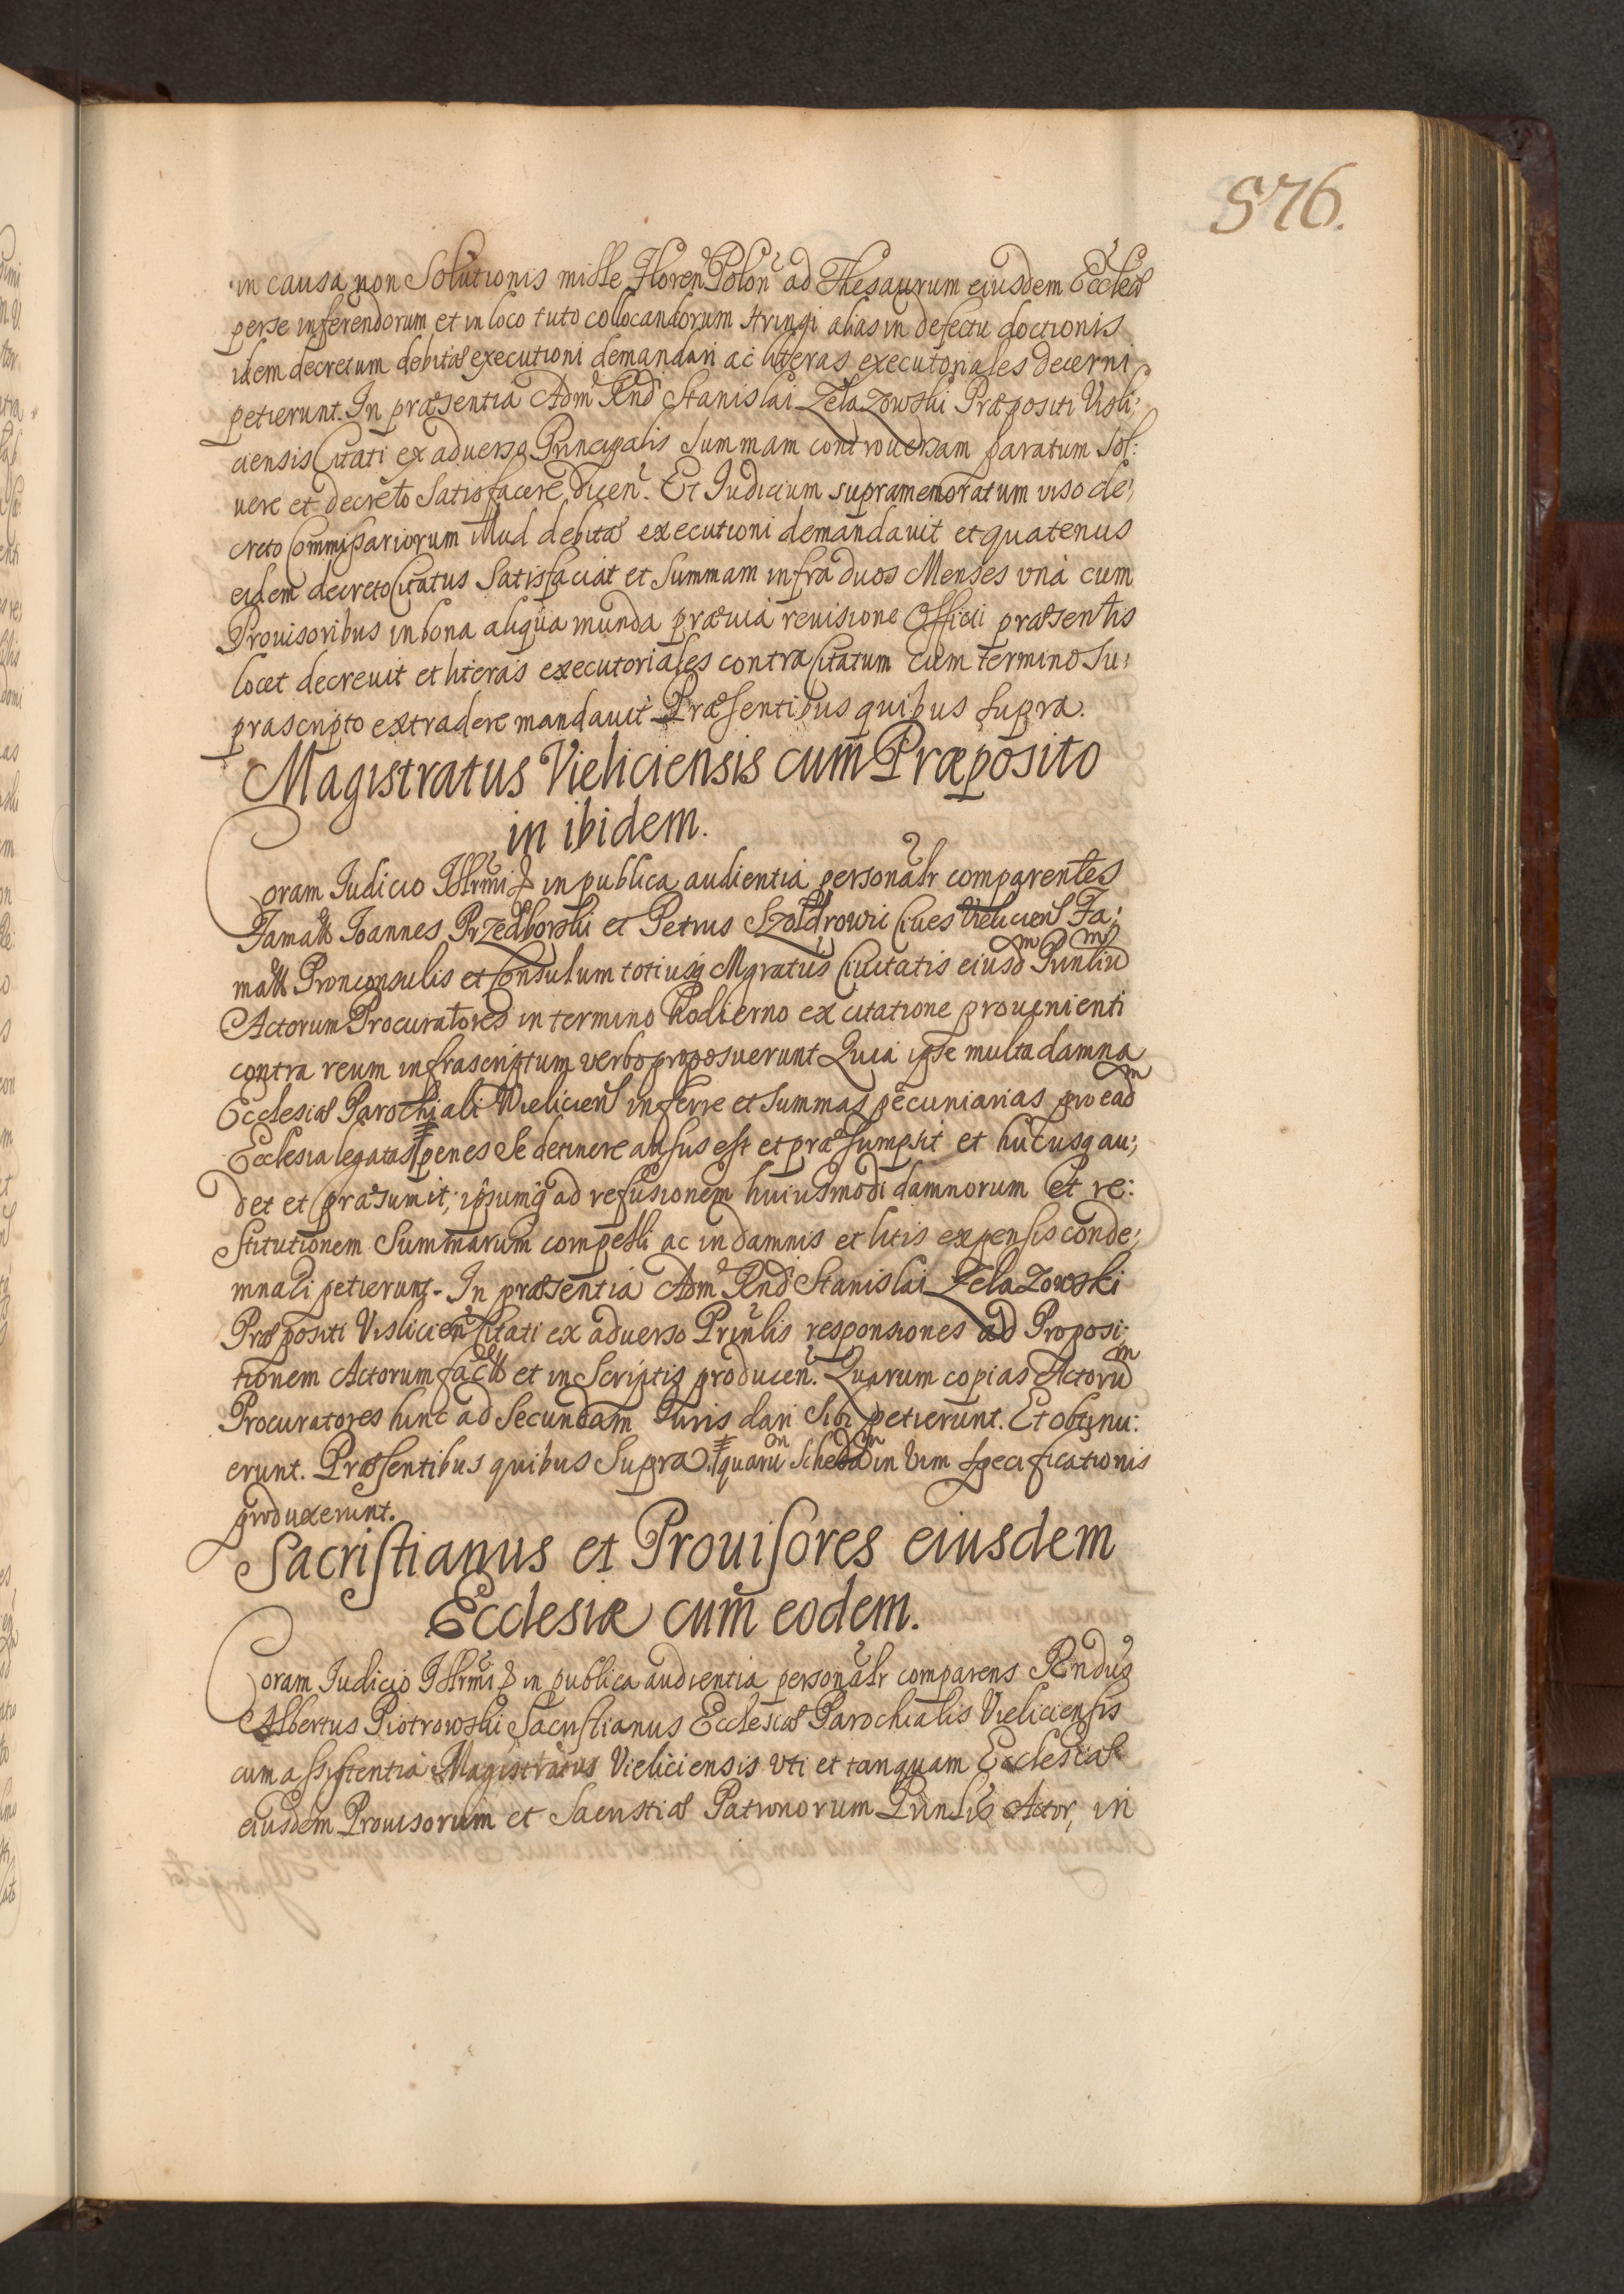 876.
in causa non Solutionis mille Floren Polon ad Thesaurum eiusdem Eccleae
per se inferendorum et in loco tuto collocandorum stringi alias in defectu doctionis
idem decretum debitae executioni demandari ac literas executoriales decerni
petierunt. In praesentia Adm Rndi Stanislai Zelazowski Praepositi Visli:
ciensis Citati ex adverso Principalis Summam controversam paratum sol:
vere et decreto Satisfacere dicen. Et Iudicium supramemoratum viso de:
creto Commissariorum illud debitae executioni demandavit et quatenus
eidem decreto Citatus Satisfaciat et Summam infra duos Menses una cum
Prouisoribus in bona aliqua munda praevia reuisione Officii praesentis
locet decreuit et literas executoriales contra Citatum cum termino su:
prascripto extradere mandauit Praesentibus quibus supra.
Magistratus Vieliciensis cum Praeposito
in ibidem.
Coram Iudicio Illrmi & in publica audientia personalr comparentes
Famati Ioannes Przedborski et Petrus Szoldrowic Ciues Vieliciens Fa:
matt Proconsulis et Consulum totiusq Mgratus Ciuitatis eiusdm Prinliu
Actorum Procuratores in termino hodierno ex citatione prouenienti
contra reum infrascriptum verbo proposuerunt Quia ipse multa damna
Ecclesiae Parochiali Vieliciens inferre et Summas pecuniarias pro eadm
Ecclesia legatas penes Se detinere ausus est et praesumpsit et hucusq au:
det et praesumit; ipsumq ad refusionem huiusmodi damnorum et re:
stitutionem Summarum compelli ac in damnis et litis expensis conde:
mnari petierunt. In praesentia Adm Rndi Stanislai Zelazowski
Praepositi Vislicien Citati ex adverso Prinlis responsiones ad Proposi:
tionem Actorum fact et in Scriptis producen. Quarum copias Actorum
Procuratores hinc ad Secundam Iuris dari sibi petierunt. Et obtinu:
erunt. Praesentibus quibus Supra. quarum Schedam in vim specificationis
produxerunt.
Sacristianus et Prouisores eiusdem
Ecclesiae cum eodem.
Coram Iudicio Illrmi & in publica audientia personalr comparens Rndus
Albertus Piotrowski Sacristianus Ecclesiae Parochialis Vieliciensis
cum assistentia Magistratus Vieliciensis vti et tanquam Ecclesiae
eiusdem Prouisorum et Sacristiae Patronorum Prinlis Actor, in